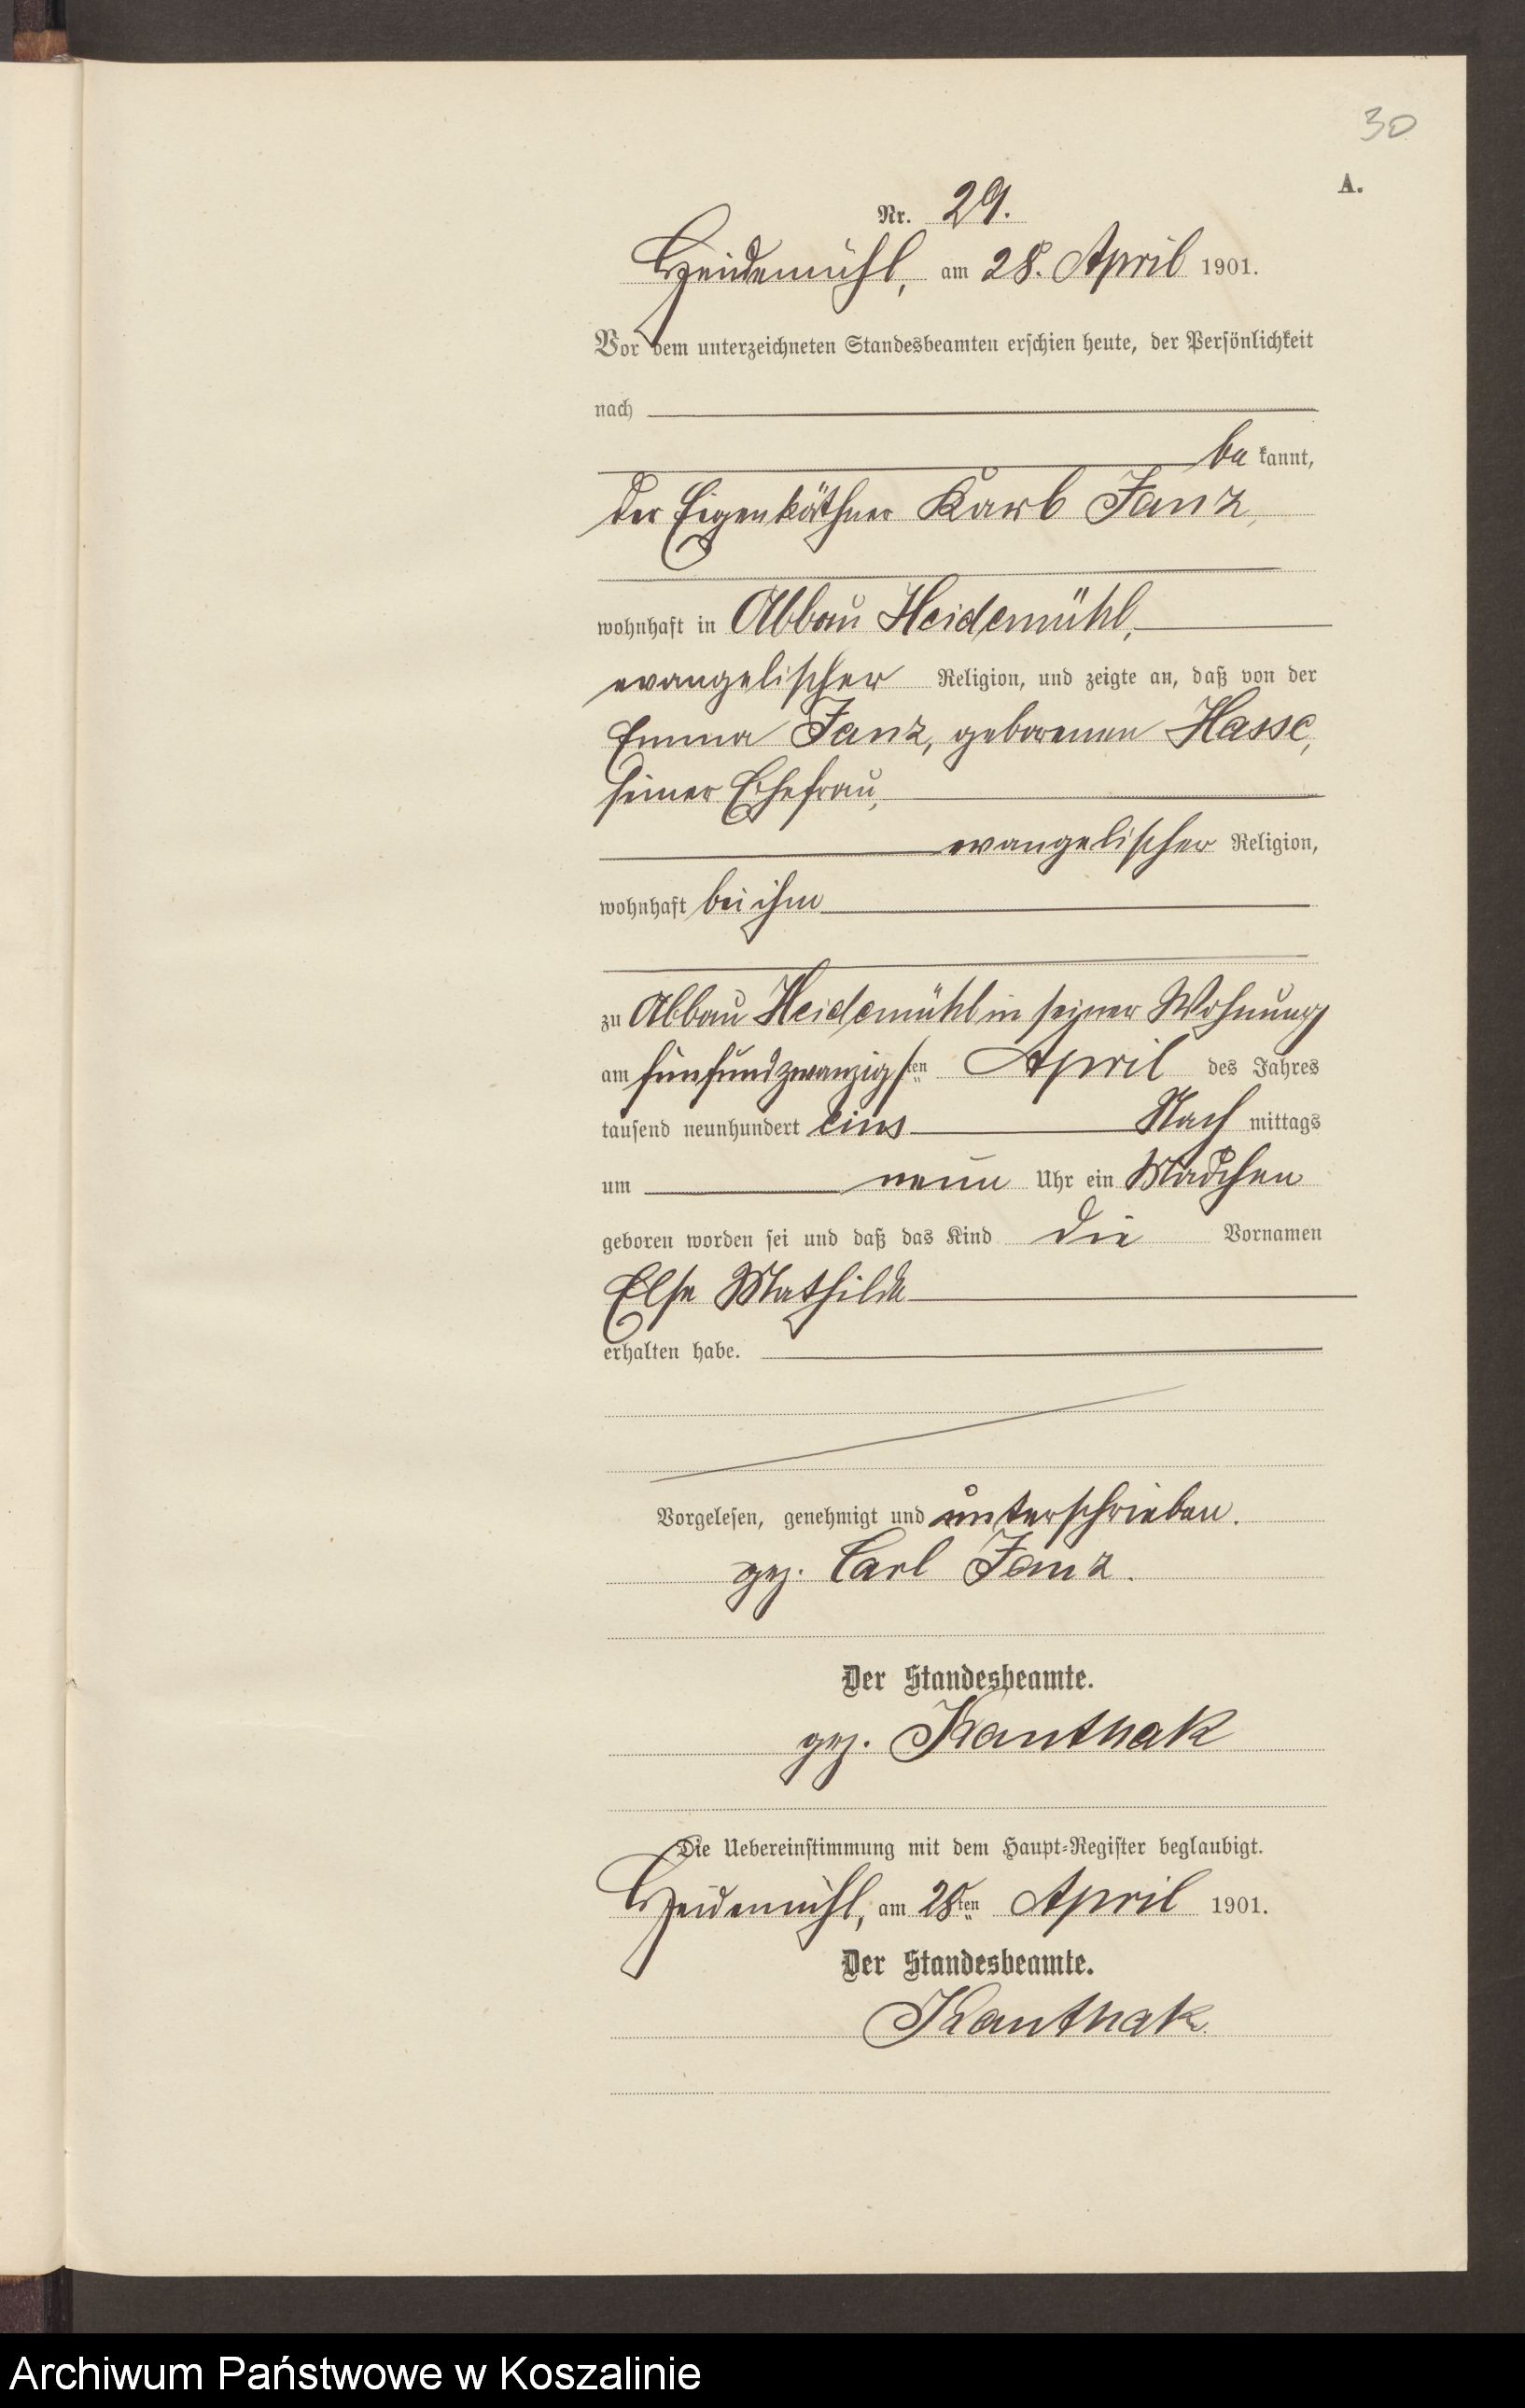 30
A.
Nr. 29.
Heidemühl, am 28. April 1901.
Vor dem unterzeichneten Standesbeamten erschien heute, der Persönlichkeit
nach
be kannt,
der Eigenkäthner Karl Janz,
wohnhaft in Abbau Heidemühl,
evangelischer Religion, und zeigte an, daß von der
Emma Janz, geborenen Hasse,
seiner Ehefrau,
evangelischer Religion,
wohnhaft bei ihm
zu Abbau Heidemühl in seiner Wohnung
am fünfundzwanzigsten April des Jahres
tausend neunhundert eins Nach mittags
um neun Uhr ein Mädchen
geboren worden sei und daß das Kind die Vornamen
Else Mathilde
erhalten habe.
Vorgelesen, genehmigt und unterschrieben.
gez. Carl Janz.
Der Standesbeamte.
gez. Kanthak
Die Uebereinstimmung mit dem Haupt-Register beglaubigt.
Heidemühl, am 28ten April 1901.
Der Standesbeamte.
Kanthak.
Archiwum Państwowe w Koszalinie